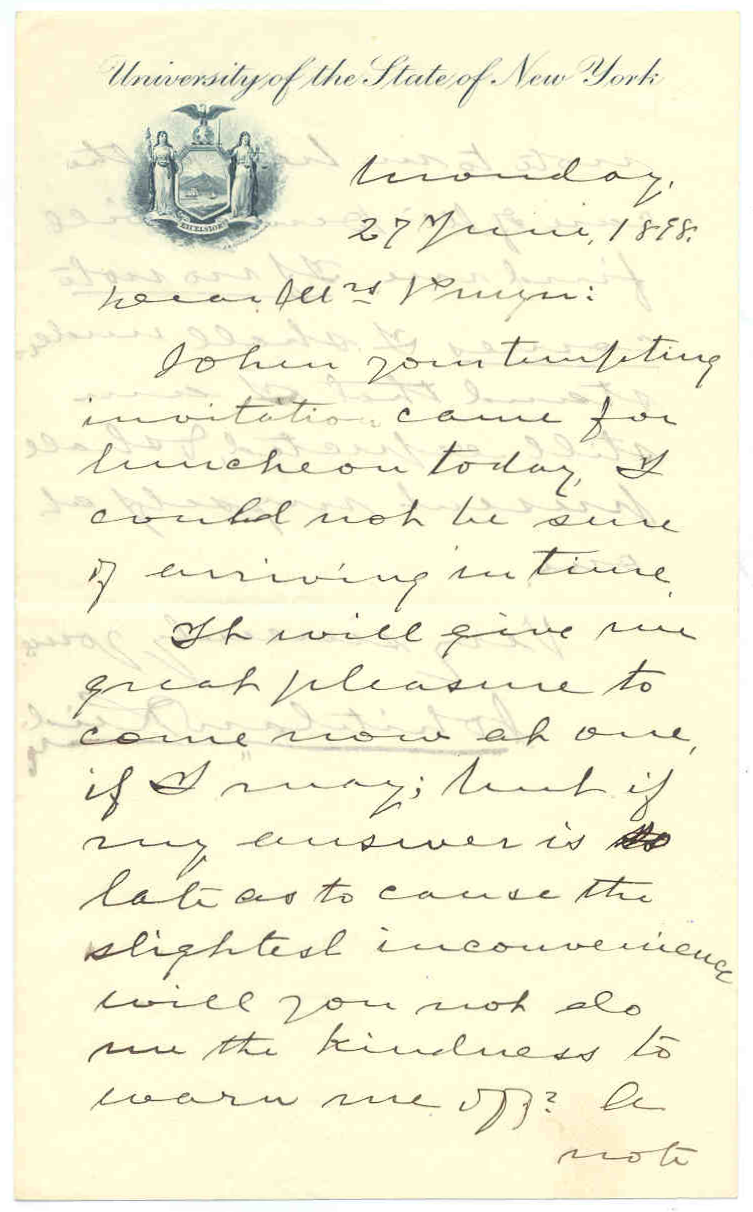 University of the State of New York
EXCELSIOR
Monday,
27 June, 1898.
Dear Mrs Pruyn:
When your tempting
invitation came for
luncheon today, I
could not be sure
of arriving in time.
It will give me
great pleasure to
come now at one,
if I may; but if
my answer is so
late as to cause the
slightest inconvenience
will you not do
me the kindness to
warn me off? A
note